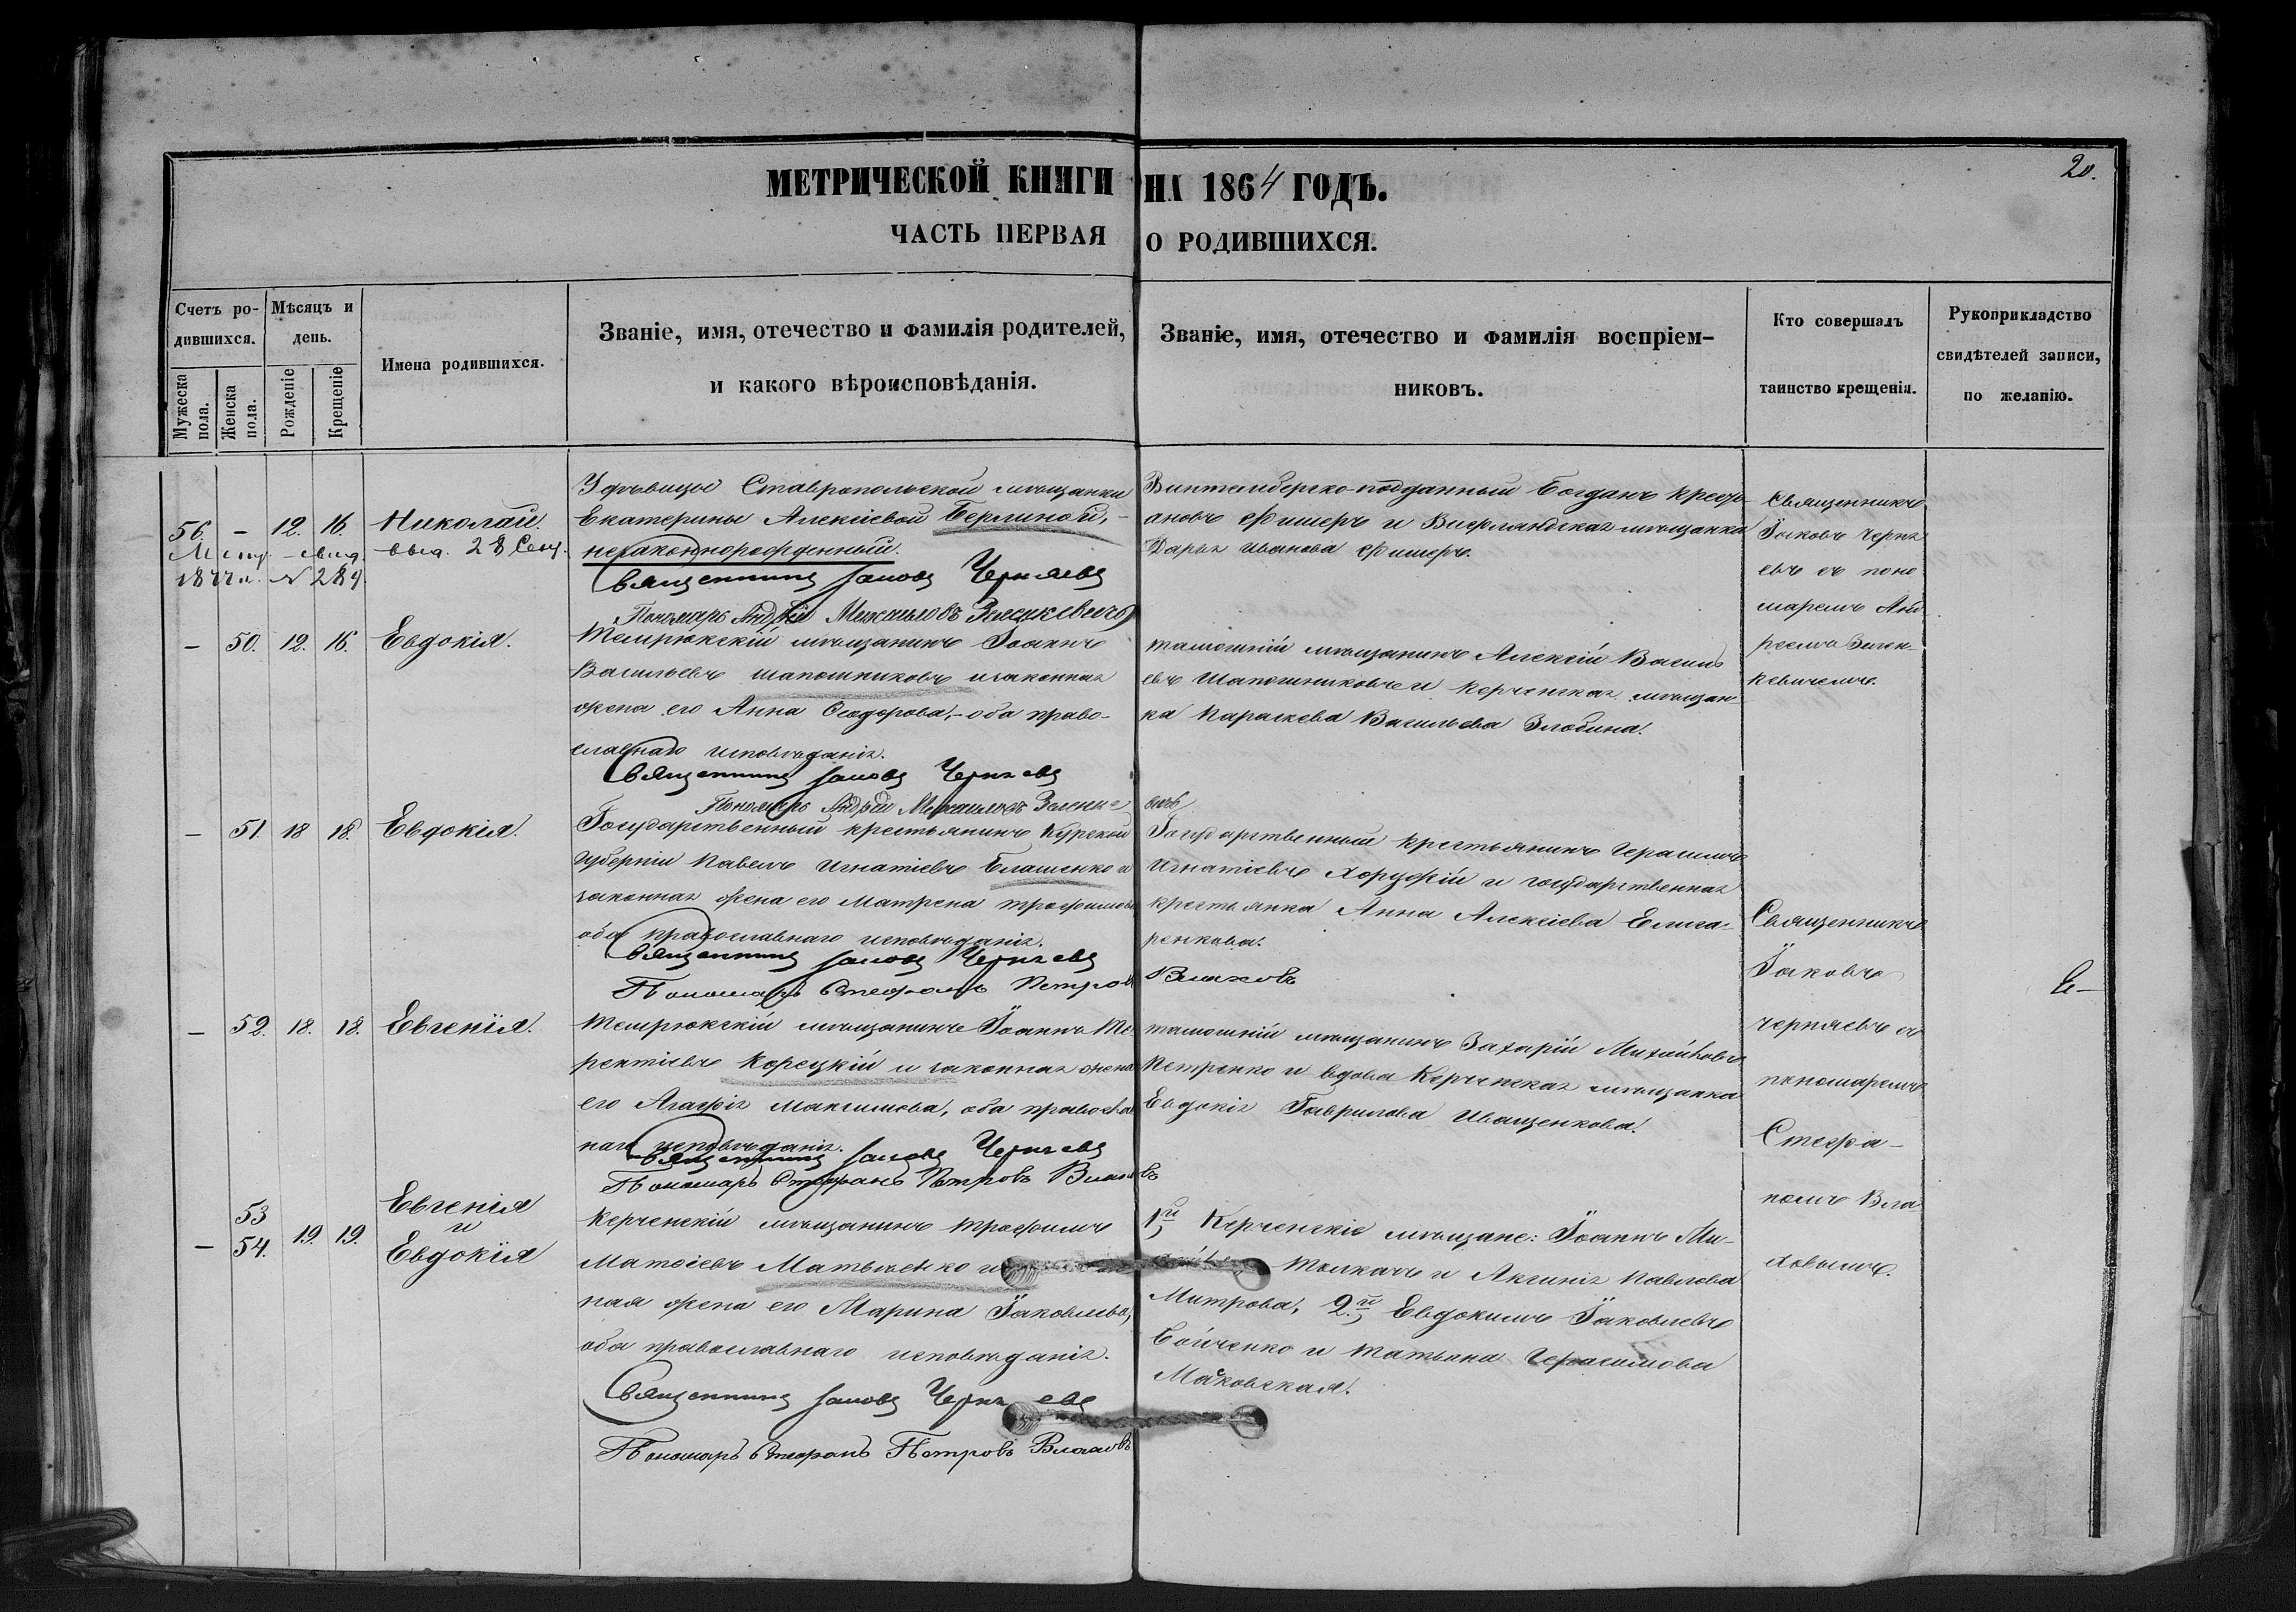 МЕТРИЧЕСКОЙ КНИГИ НА 1864 ГОДЪ.
20.
ЧАСТЬ ПЕРВАЯ О РОДИВШИХСЯ.
Счетъ ро-
дившихся.
Мужеска пола.
Женска пола.
Мѣсяцъ и
день.
Рожденіе
Крещеніе
Имена родившихся.
Званіе, имя, отечество и фамилія родителей,
и какого вѣроисповѣданія.
Званіе, имя, отечество и фамилія воспріем-
никовъ.
Кто совершалъ
таинство крещенія.
Рукоприкладство
свидѣтелей записи,
по желанію.
56. – 12. 16. Николай.
выд. 28 Сент.
№ 289
У дѣвицы Ставропольской мѣщанки
Екатерины Алексіевой Берлиной, –
незаконнорожденный.
Священникъ Іаковъ Черняевъ
Пономарь Андрей Михаиловъ
Виртембергско-подданный Богданъ
ановъ Фишеръ и мѣщанка
Дарья Иванова Фишеръ.
Священникъ
Іаковъ Черня
евъ съ поно
маремъ Анд
реемъ Зелен-
кевичемъ.
– 50. 12. 16. Евдокія.
Темрюкскій мѣщанинъ Іоаннъ
Васильевъ Шапошниковъ и законная
жена его Анна Ѳеодорова, – оба право-
славнаго исповѣданія.
Священникъ Іаковъ Черняевъ
Пономарь Андрей Михаиловъ
тамошній мѣщанинъ Алексій Василь
евъ Шапошниковъ и Керченская мѣщан-
ка Параскева Васильева Злобина.
– 51. 18 18. Евдокія.
Государственный крестьянинъ Курской
губерніи Павелъ Игнатіевъ Блашенко и
законная жена его Матрена Трофимова
оба православнаго исповѣданія.
Священникъ Іаковъ Черняевъ
Пономарь Стефанъ Петровъ Влаховъ
Государственный крестьянинъ Герасимъ
Игнатіевъ и государственная
крестьянка Анна Алексіева Елиса-
ренкова.
Священникъ
Іаковъ
Черняевъ съ
пономаремъ
Стефа-
номъ Вла
ховымъ.
– 52. 18. 18. Евгенія.
Темрюкскій мѣщанинъ Іоаннъ Те-
рентіевъ Корецкій и законная жена
его Агафія Максимова, оба православ
наго исповѣданія.
Священникъ Іаковъ Черняевъ
Пономарь Стефанъ Петровъ Влаховъ
тамошній мѣщанинъ Захарій Михайловъ
Петренко и вдова Керченская мѣщанка
Евдокія Гаврилова Иващенкова.
– 53 54. 19. 19. Евгенія
и
Евдокія
Керченскій мѣщанинъ Трофимъ
Матѳіевъ Матвіенко и
ная жена его Марина Іаковлева,
оба православнаго исповѣданія.
Священникъ Іаковъ Черняевъ
Пономарь Стефанъ Петровъ Влаховъ
1й Керченскіе мѣщане: Іоаннъ Ми-
Толкачъ и Аксинія Павлова
Митрова, 2й Евдокимъ Іаковлевъ
Бойченко и Татьяна Герасимова
Маковская.